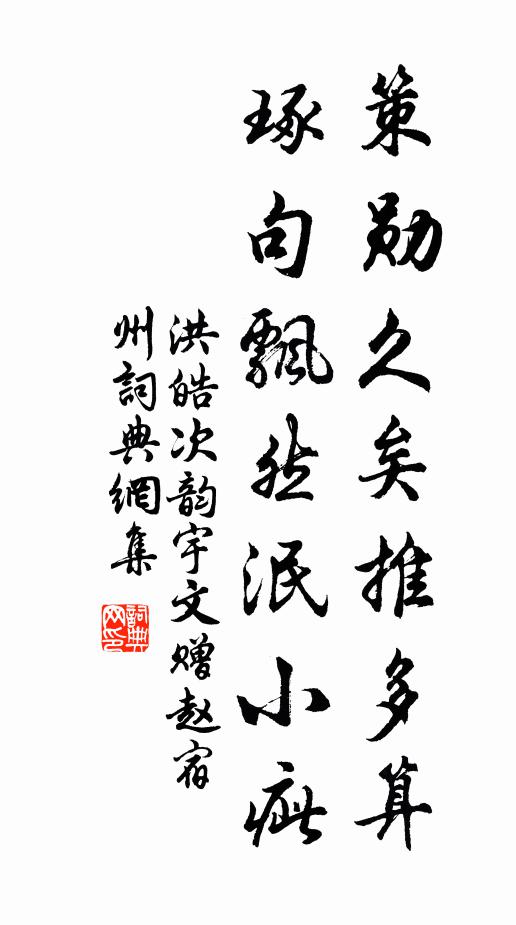 策勋久矣推多算
琢句飄然泯小疵
洪皓次韵宇文赠赵宿
州詞典網集
詞典
网印